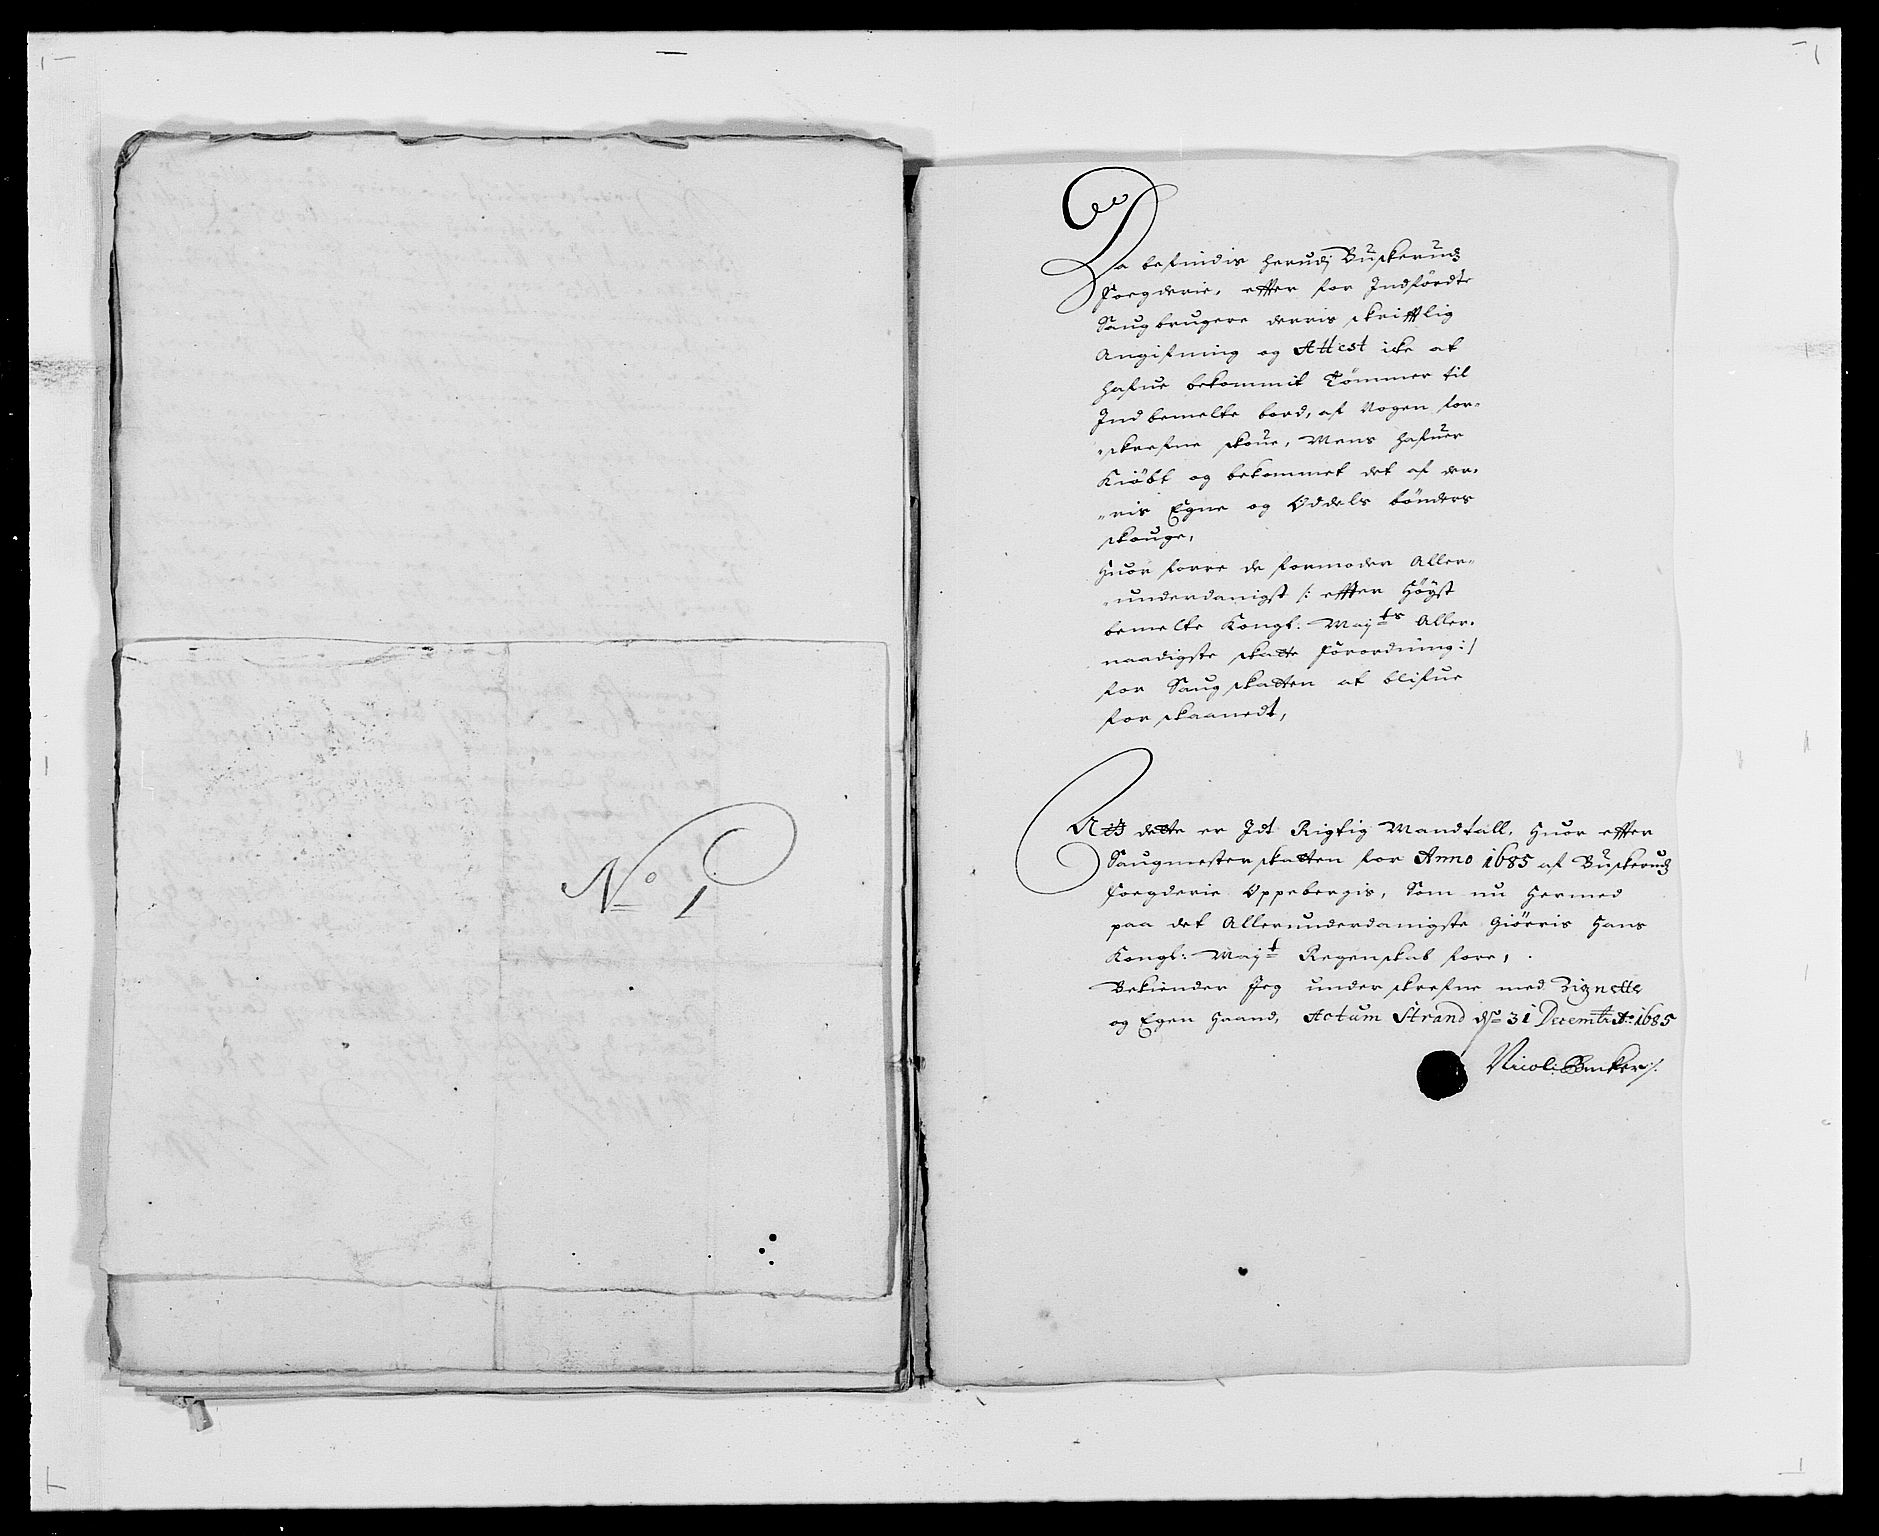 No 1
Da befindis herudj Buskeruds
Foegderie, effter for Indførdte
Saugbrugere derris skrifftlig
Angifning og Attest icke at
hafue bekommit Tømmer til
Indbemelte bord, af Nogen for-
-skrefne skoue, Mens hafuer
Kiøbt og bekommet det af der-
-ris Egne og Oddels bønders
skouge,
Huor forre de formoder Aller-
-underdanigst /: effter Høyst
bemelte Kongl: Mayts Aller-
naadigste skatte Forordning :/
for Saugskatten at blifue
forskaanedt,
At dette er Idt Rigtig Mandtall, Huor effter
Saugmesterskatten for Anno 1685 af Buskeruds
Foegderie Oppebergis, Som nu Hermed
paa det Allerunderdanigste Giøris Hans
Kongl: Mayt Regenskab fore,
Bekiender Jeg underskrefne med Zignette
og Egen Haand, Actum Strand ds 31 Decembr Ao 1685
Nicol: